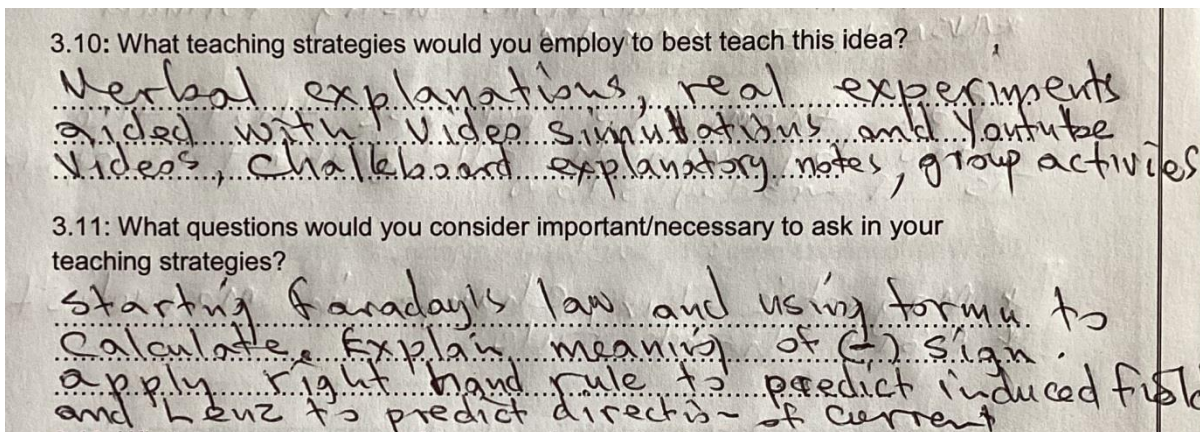 3.10: What teaching strategies would you employ to best teach this idea?
Verbal explanations, real experiments
aided with video simulations and Youtube
Videos, Challeboard explanatory notes, group activites
3.11: What questions would you consider important/necessary to ask in your
teaching strategies?
Starting faraday's law and using formu. to
Calculate. Explain meaning of (-) sign.
apply right hand rule to predict induced field
and Lenz to predict direction of current